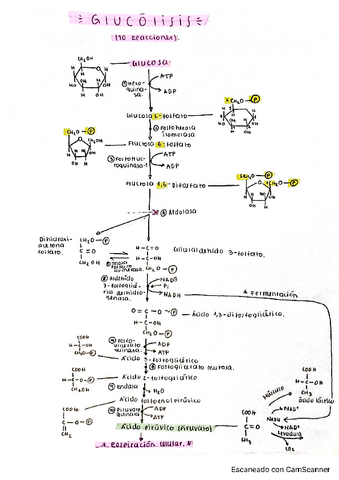 GLUCÓLISIS
(10 reacciones).
GLUCOSA
ATP
① Hexo-
quina-
sa.
ADP
Glucosa 6-fosfato
② Fosfohexosa
isomerasa
Fructosa 6-fosfato
ATP
③ Fosfofruc-
toquinasa-1
ADP
Fructosa 1,6-Difosfato
④ Aldolasa
Dihidroxi-
acetona
fosfato.
Gliceraldehído 3-fosfato.
⑥ Aldehído
3-fosfoglicé-
rico deshidro-
genasa.
NAD+
Pi
NADH
* Fermentación
Ácido 1,3-difosfoglicérico.
ADP
ATP
Ácido 3-fosfoglicérico
⑧ Fosfoglicerato mutasa.
Ácido 2-fosfoglicérico
⑨ Enolasa
H₂O
Ácido fosfoenolpirúvico
⑩ Piruvato
quinasa
ADP
ATP
Ácido Pirúvico (Piruvato)
* Respiración celular. *
COOH
C=O
CH₃
Músculo
NAD+
NADH
NAD+
Levadura
CO₂
COOH
H-C-OH
CH₃
Ácido láctico
Escaneado con CamScanner